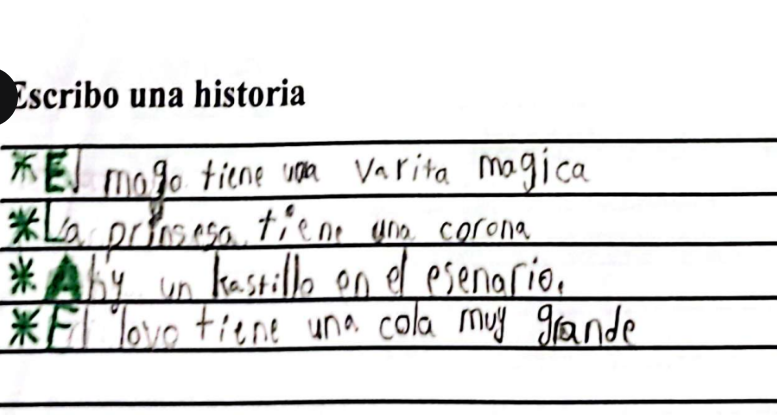 Escribo una historia
* El mago tiene una varita magica
* La prinsesa tiene una corona
* Ahy un kastillo en el esenario.
* El lovo tiene una cola muy grande